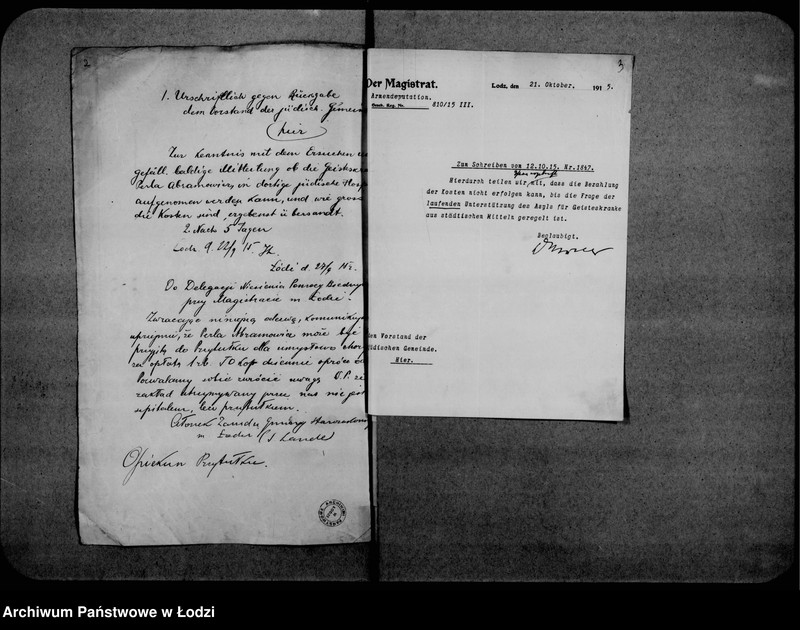 2
1. Urschriftlich gegen Rückgabe
dem Vorstand der jüdisch. Gemein
hier
Zur Kenntnis mit dem Ersuchen
gefäll. baldige Mitteilung ob die Geisteskra
Perla Abramowicz, in dortige jüdische Hosp
aufgenommen werden kann, und wie gross
die Kosten sind, ergebenst übersandt.
2. Nach 5 Tagen
Lodz 9. 22/9 15.
Łódź d. 27/9 15 r.
Do Delegacji Niesienia Pomocy Biednym
przy Magistracie m. Łodzi.
Zwracając niniejszą odezwę, komunikuje
uprzejmie, że Perla Abramowicz może być
przyjętą do Przytułku dla umysłowo chor
za opłatą 1 rb. 50 kop dziennie oprócz
Pozwalamy sobie zwrócić uwagę, że
zakład utrzymywany przez nas nie jest
szpitalem, lecz przytułkiem.
Członek Zarządu Gminy Starozakon
m. Łodzi (S Lande)
Opiekun Przytułku.
3
Der Magistrat.
Armendeputation.
Gesch. Reg. Nr. 810/15 III.
Lodz, den 21. Oktober. 1915.
Zum Schreiben vom 12.10.15. Nr.1847.
Hierdurch teilen wir mit, dass die Bezahlung
der Kosten nicht erfolgen kann, bis die Frage der
laufenden Unterstützung des Asyls für Geisteskranke
aus städtischen Mitteln geregelt ist.
Beglaubigt.
den Vorstand der
jüdischen Gemeinde.
Hier.
Archiwum Państwowe w Łodzi